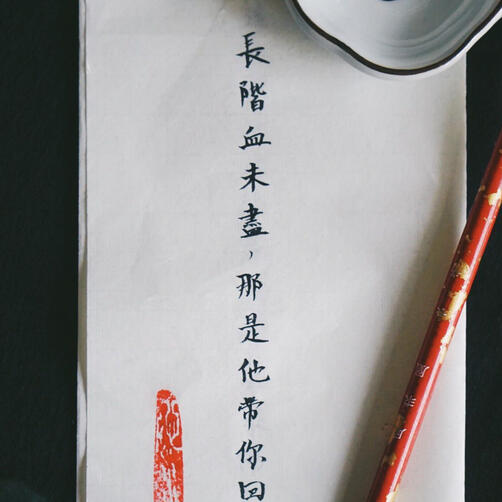 長階血未盡，那是他帶你回